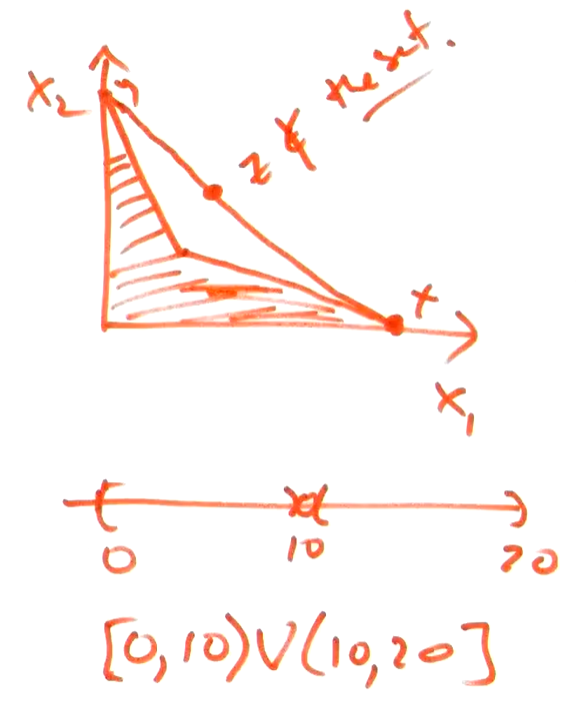 x₂ y
z ∉ the set.
x
x₁
0 10 20
[0,10)∪(10,20]